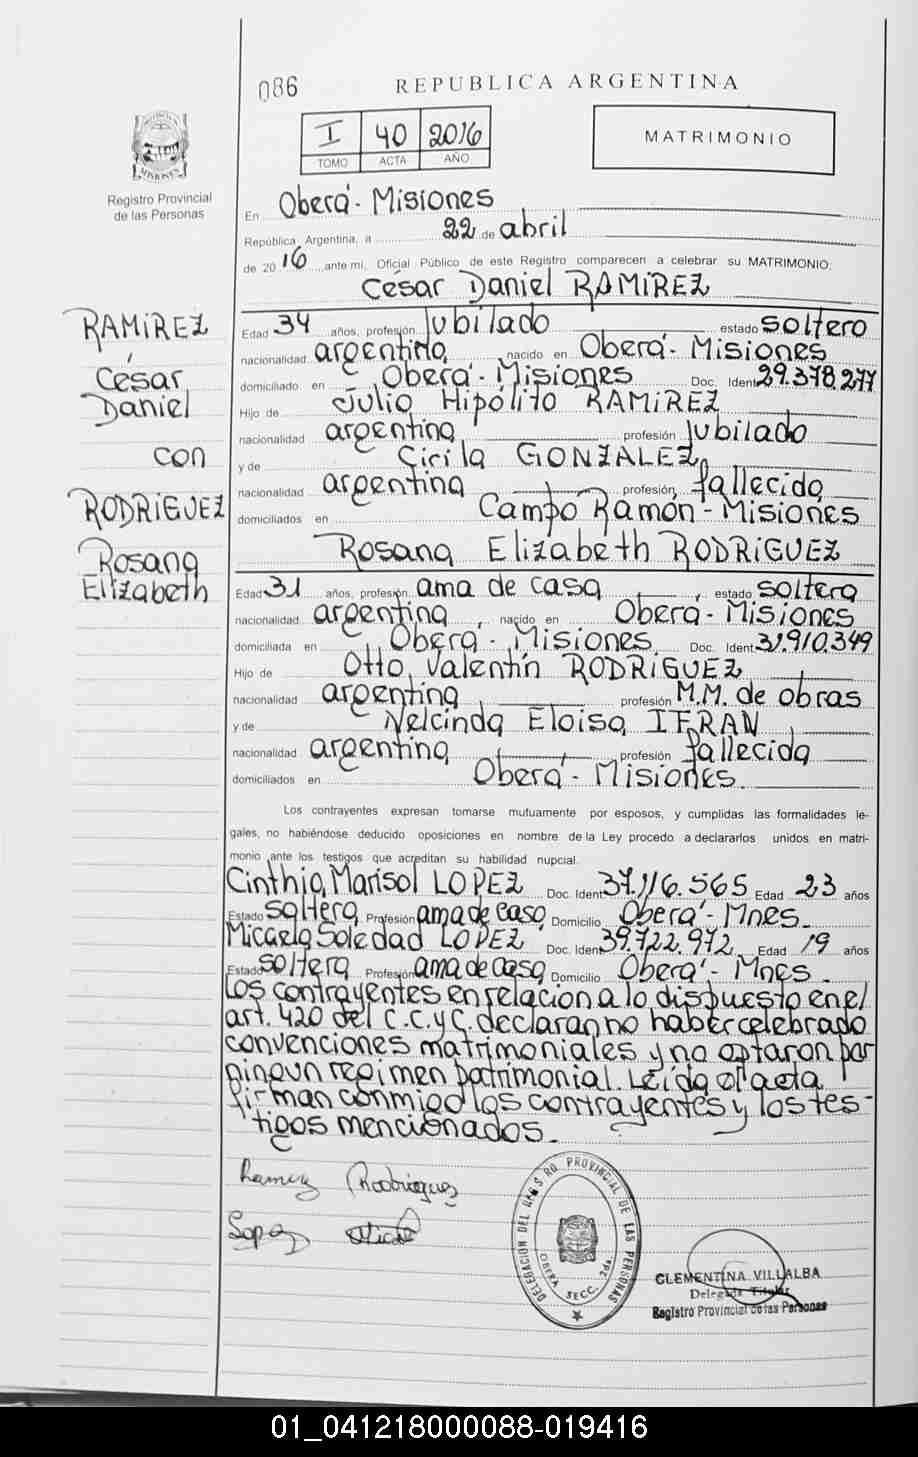 086
REPUBLICA ARGENTINA
I 40 2016
TOMO ACTA AÑO
MATRIMONIO
MISIONES
Registro Provincial
de las Personas
En Oberá - Misiones
República Argentina, a 22 de abril
de 2016 ante mi, Oficial Público de este Registro comparecen a celebrar su MATRIMONIO:
César Daniel RAMIREZ
RAMIREZ
César
Daniel
con
RODRIGUEZ
Rosana
Elizabeth
Edad 34 años, profesión Jubilado estado soltero
nacionalidad argentino nacido en Oberá - Misiones
domiciliado en Oberá - Misiones Doc. Ident. 29.378.277
Hijo de Julio Hipólito RAMIREZ
nacionalidad argentina profesión Jubilado
y de Cirila GONZALEZ
nacionalidad argentina profesión fallecida
domiciliados en Campo Ramón - Misiones
Rosana Elizabeth RODRIGUEZ
Edad 31 años, profesión ama de casa estado soltera
nacionalidad argentina, nacido en Oberá - Misiones
domiciliada en Oberá - Misiones Doc. Ident. 31.910.349
Hijo de Otto Valentín RODRIGUEZ
nacionalidad argentina profesión M.M. de obras
y de Nelcinda Eloisa IFRAN
nacionalidad argentina profesión fallecida
domiciliados en Oberá - Misiones
Los contrayentes expresan tomarse mutuamente por esposos, y cumplidas las formalidades le-
gales, no habiéndose deducido oposiciones en nombre de la Ley procedo a declararlos unidos en matri-
monio ante los testigos que acreditan su habilidad nupcial.
Cinthia Marisol LOPEZ Doc. Ident. 37.116.565 Edad 23 años
Estado soltera Profesión ama de casa Domicilio Oberá - Mnes.
Micaela Soledad LOPEZ Doc. Ident. 39.722.972 Edad 19 años
Estado soltera Profesión ama de casa Domicilio Oberá - Mnes
Los contrayentes en relacion a lo dispuesto en el
art. 420 del C.C.y C. declaran no haber celebrado
convenciones matrimoniales y no optaron por
ningun regimen patrimonial. Leída el acta
firman conmigo los contrayentes y los tes-
tigos mencionados.
Ramirez Rodriguez
Lopez
DELEGACION DEL REGISTRO PROVINCIAL DE LAS PERSONAS
OBERA SECC. 2da.
CLEMENTINA VILLALBA
Delegada Titular
Registro Provincial de las Personas
01_041218000088-019416